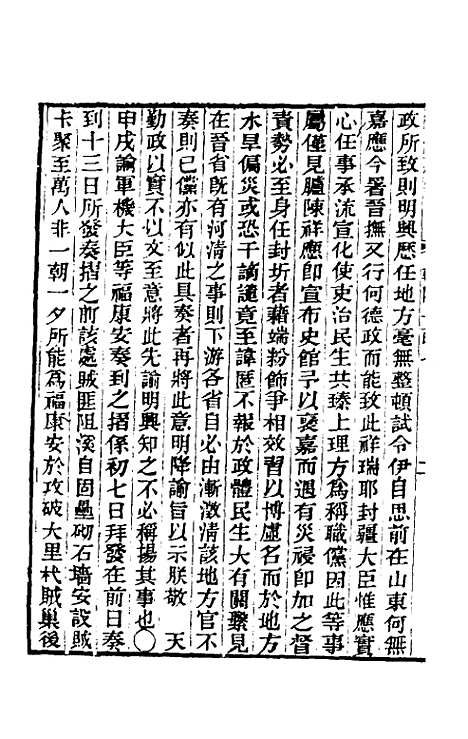 政所致則明興歷任地方毫無整頓試令伊自思前在山東何無
嘉應今署晉撫又行何德政而能致此祥瑞耶封疆大臣惟應實
心任事承流宣化使吏治民生共臻上理方為稱職儻因此等事
屬僅見臚陳祥應卽宣布史館予以褒嘉而遇有災祲卽加之督
責勢必至身任封圻者藉端粉飾爭相效習以博虛名而於地方
水旱偏災或恐干謫譴竟至諱匿不報於政體民生大有關繫見
在晉省旣有河清之事則下游各省自必由漸澂清該地方官不
奏則已儻亦有似此具奏者再將此意明降諭旨以示朕敬 天
勤政以實不以文至意將此先諭明興知之不必稱揚其事也○
甲戌諭軍機大臣等福康安奏到之摺係初七日拜發在前日奏
到十三日所發奏摺之前該處賊匪阻溪自固壘砌石墻安設賊
卡聚至萬人非一朝一夕所能為福康安於攻破大里杙賊巢後